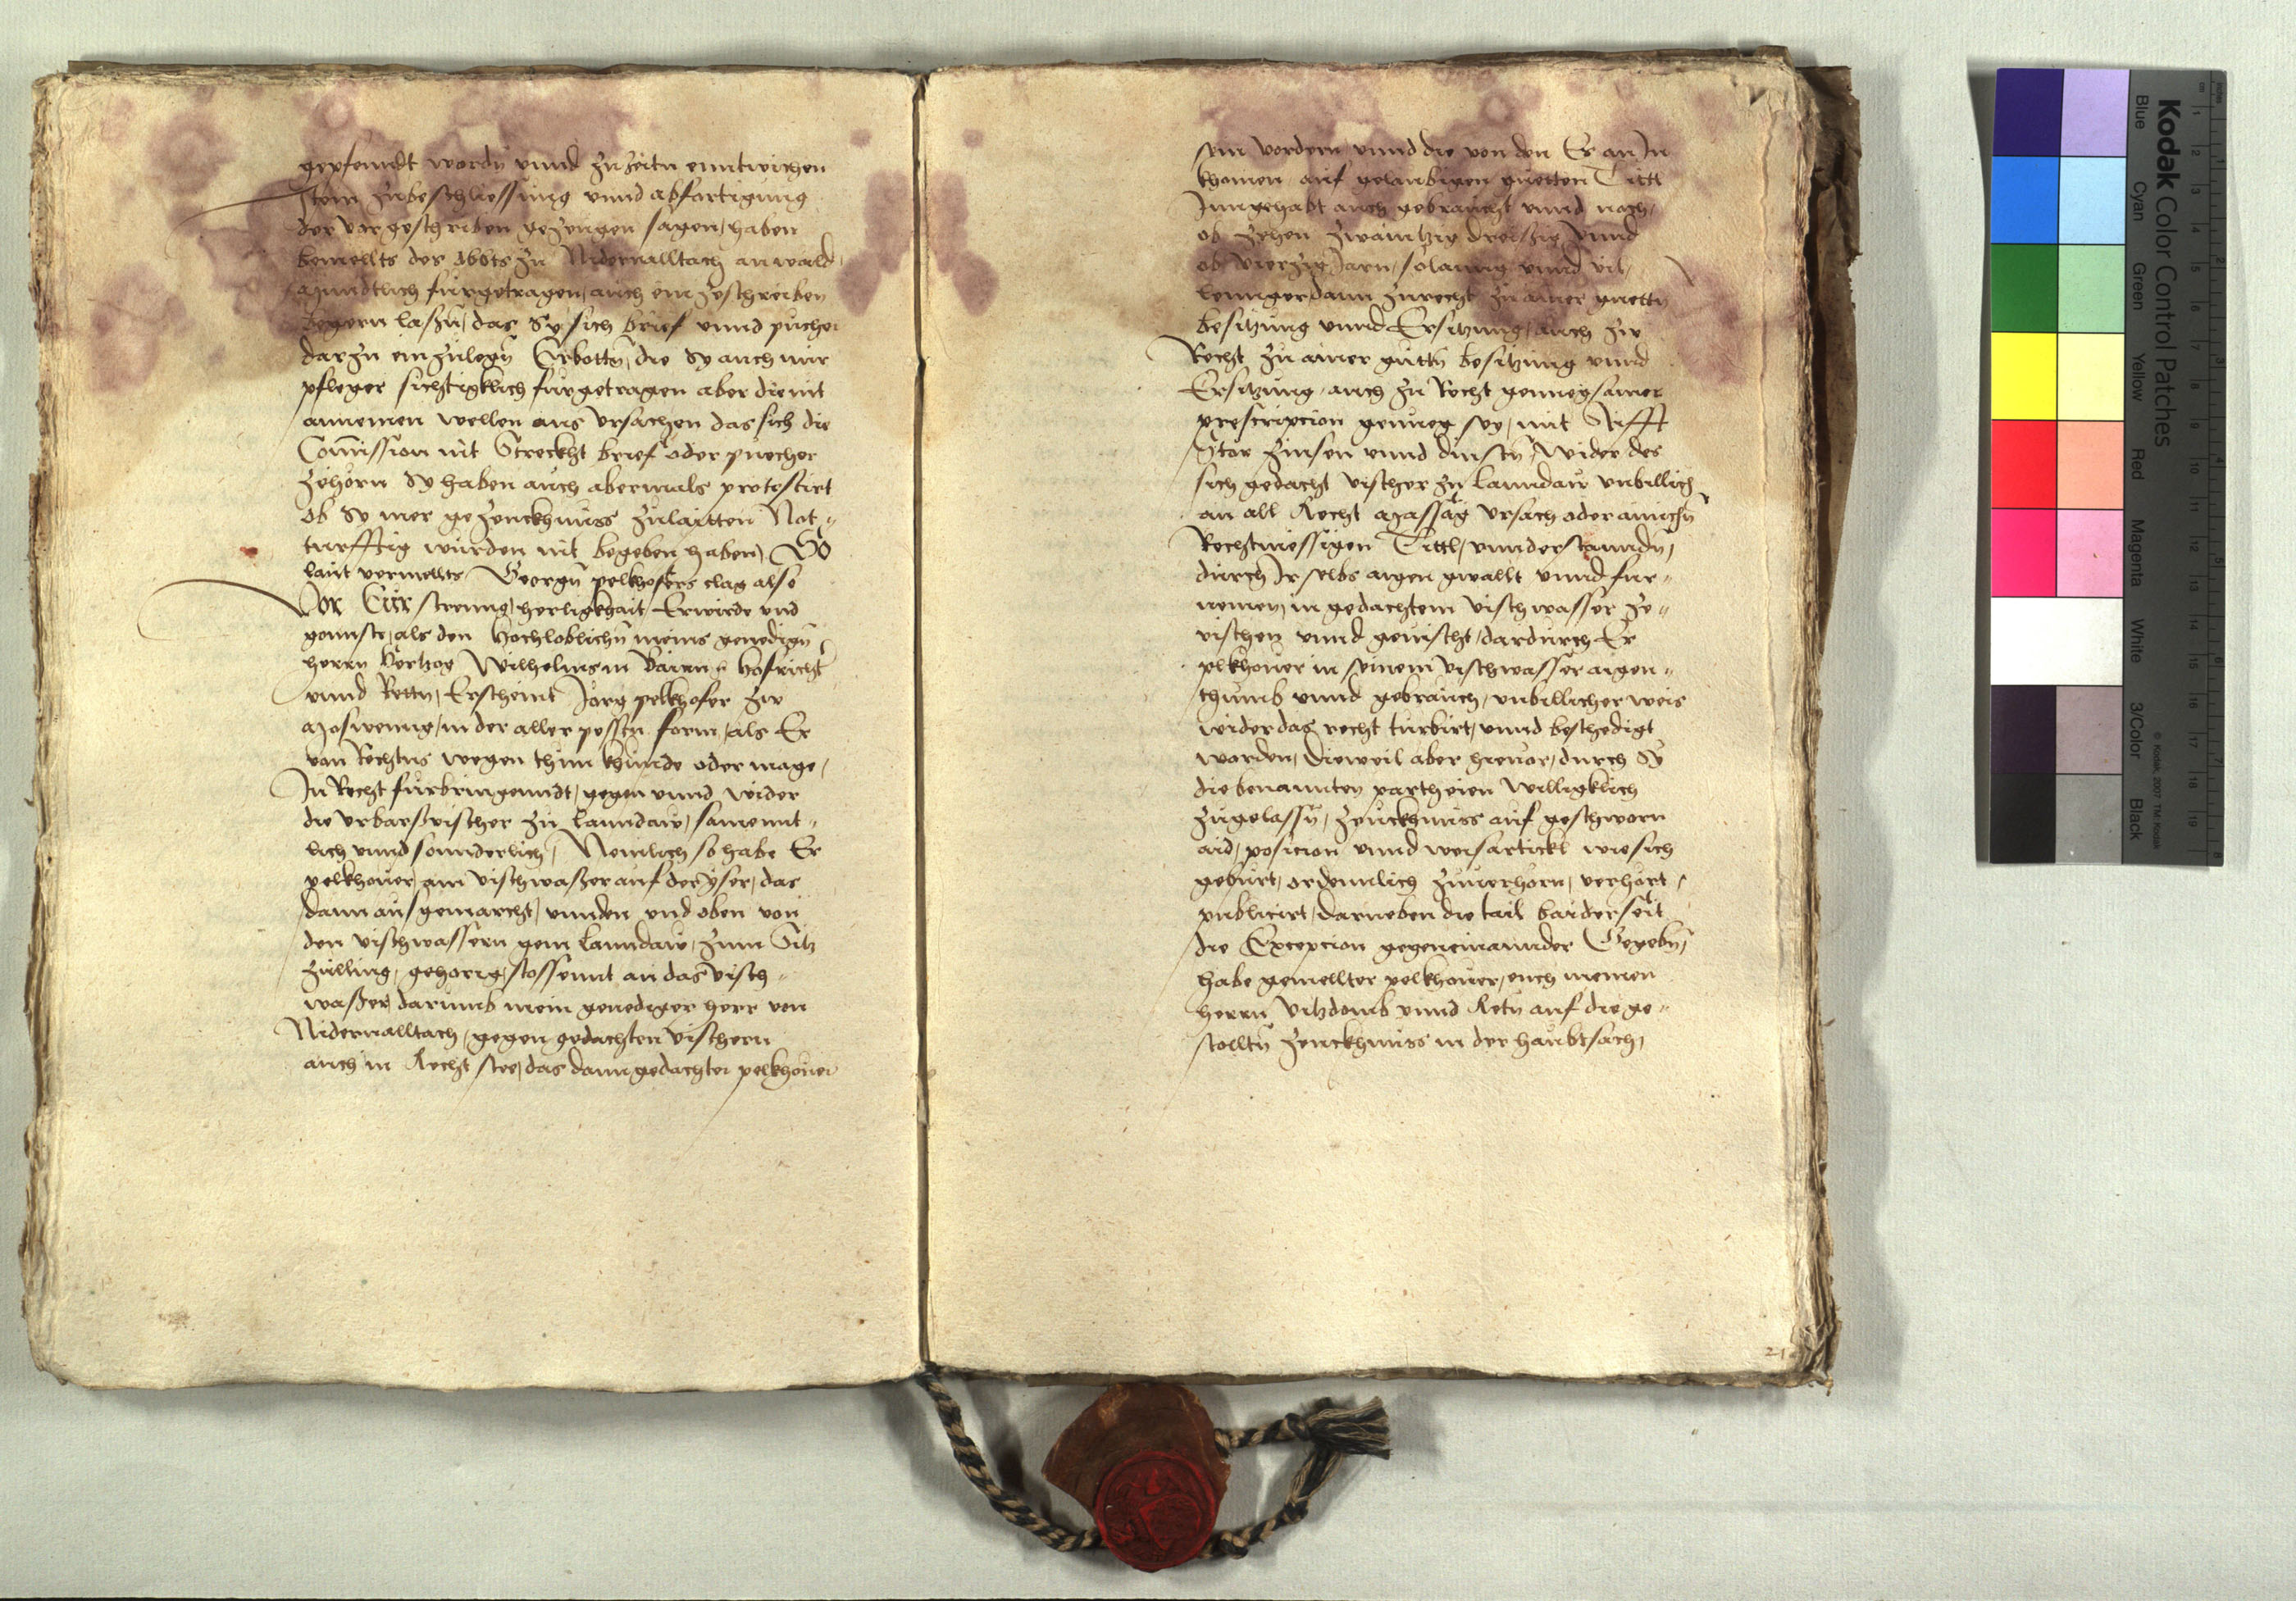 gepfenndt wordn vnnd zu zeitn enntwichen
Item zubeschliessung vnnd abfertigung
der vorgeschriben gezeugen sagen, haben
bemellts des Abbts zu Nidernalltach anwald
mundtlich furgetragen, auch ein zeschreiben
begern laßn, das Sy sich brief vnnd pucher
darzu einzulegn Erbottn, die Sy auch mir
pfleger sichtigklich furgetragen aber die nit
annemen wellen aus Vrsachen das sich die
Comission nit Streckht brief oder puecher
zehorn Sy haben auch abermals protestirt
ob Sy mer gezeuckhnuss zulaitten Not"
turfftig wurden nit begeben haben, So
laut vermellts Georgn pelkhofers clag also
Vor Eur strenng, herligkhait, Erwirde vnd
gonnste, als den Hochloblichn meins genedign
herrn Hertzog Wilhelms in Bairn Hofricht
vnnd Rettn, Erscheint Jorg pelkhofer zw
Moswenng, in der aller pesstn form, als Er
von Rechtns wegen thun khunde oder mage,
In Recht furbringenndt, gegen vnnd wider
die vrbarsvischer zu Lanndaw, samennt"
lich vnnd sonnderlich, Nemlich so habe Er
pelkhover, ain vischwaßer auf der yser, das
dann ausgemarcht, vnnden vnd oben von
den vischwassern gein Lanndaw, zum Sitz
zulling, gehorig, stossennt an das visch"
waßer, darumb mein genediger herr von
Nidernalltach, gegen gedachten vischern
auch in Recht stee, das dann gedachter pelkhover
sein vordern, vnnd die von den Er an In
khomen, auf gelaubigen guetten Tittl
Inngehabt auch gebraucht vnnd noch,
ob zehen zwaintzig dreissig vnnd
ob vierzig Jarn, solanng vnnd vil,
lennger dann zurecht zu ainer guettn
besitzung vnnd Ersitzung, auch zw
Recht zu ainer guttn besitzung vnnd
Ersitzung, auch zu Recht gennegsamer
prescripcion genueg sey, mit Stifft
Stor zinsen vnnd dinstn, Wider des
sich gedacht vischer zu Lanndaw vnbillich
an all Recht massig vrsach oder ainichn
Rechtmessigen Tittl, vnnderstanndn,
durch Ir selbs aigen gwallt vnnd fur"
nemen, in gedachtem vischwasser ze"
vischen vnnd gevischt, dardurch Er
pelkhover in seinem vischwasser aigen"
thumb vnnd gebrauch, vnbillicher weis
wider das recht turbirt, vnnd beschedigt
worden, Dieweil aber hievor, durch Sy
die benannten partheien Willigklich
zugelassn, zeuckhnuss auf geschworn
aid, posicion vnnd weisartickl wie sich
geburt, ordennlich zuuerhorn, verhort,
publicirt, darneben die tail baiderseit
die Excepcion gegeneinannder Gegebn,
habe gemellter pelkhover, euch meinen
herrn Vitzdomb vnnd Retn auf die ge"
stelltn zeuckhnuss in der haubtsach,
21
Kodak Color Control Patches
Blue Cyan Green Yellow Red Magenta White 3/Color Black
© Kodak, 2007 TM: Kodak